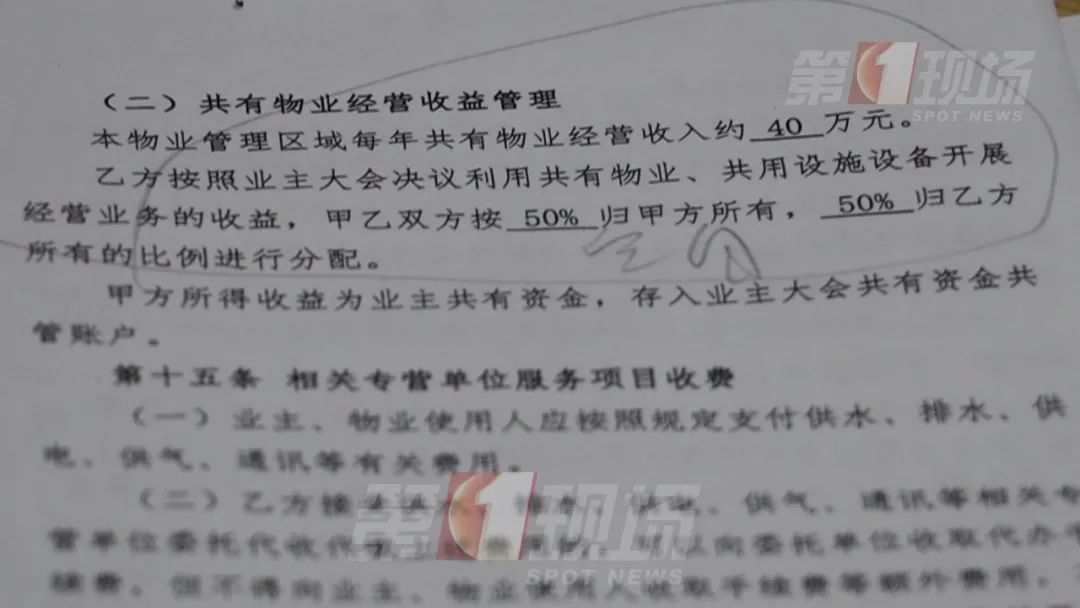 第1现场
SPOT NEWS
（二）共有物业经营收益管理
本物业管理区域每年共有物业经营收入约 40 万元。
乙方按照业主大会决议利用共有物业、共用设施设备开展
经营业务的收益，甲乙双方按 50% 归甲方所有， 50% 归乙方
所有的比例进行分配。
甲方所得收益为业主共有资金，存入业主大会共有资金共
管账户。
第十五条 相关专营单位服务项目收费
（一）业主、物业使用人应按照规定支付供水、排水、供
电、供气、通讯等有关费用。
（二）乙方接 水、排水、供电、供气、通讯等相关专
营单位委托代收代 费用的，可以向委托单位收取代办手
续费，但不得向业主、物业使用人收取手续费等额外费用。
第1现场
SPOT NEWS